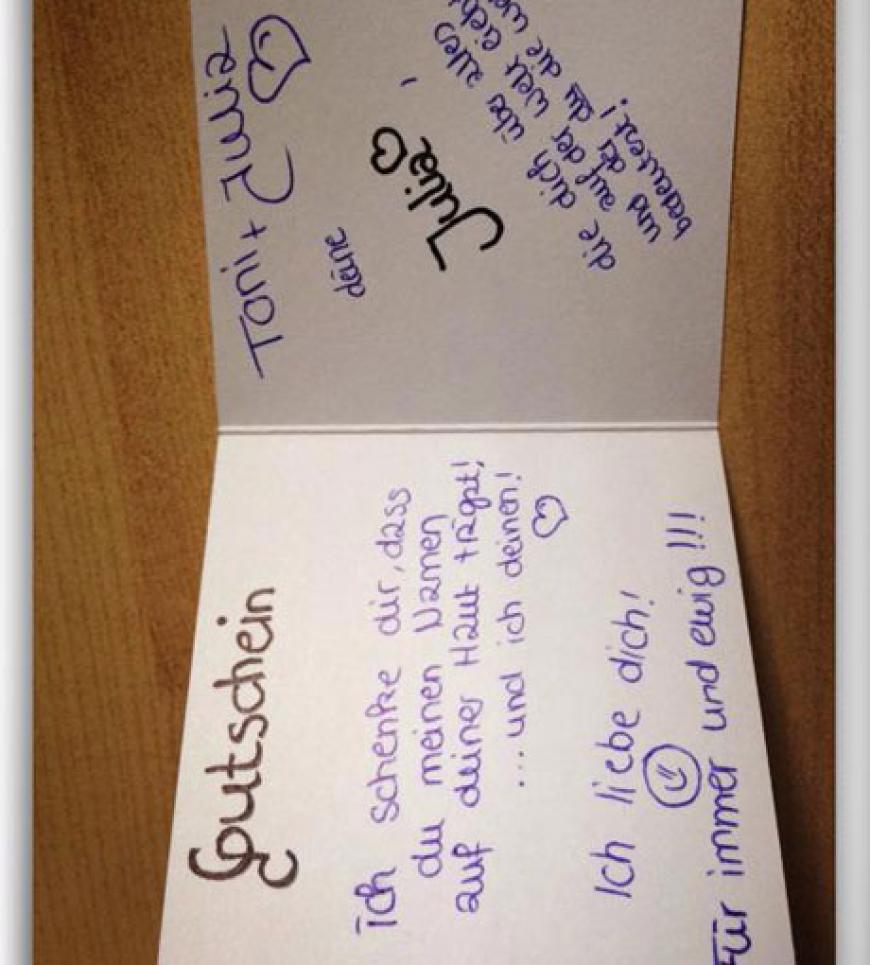 Gutschein
ich schenke dir, dass
du meinen Namen
auf deiner Haut trägst!
...und ich deinen!
♡
Ich liebe dich!
☺
Für immer und ewig!!!
Toni +
♡
deine
Julia♡,
die dich über alles
auf der Welt
und der du die
bedeutest!